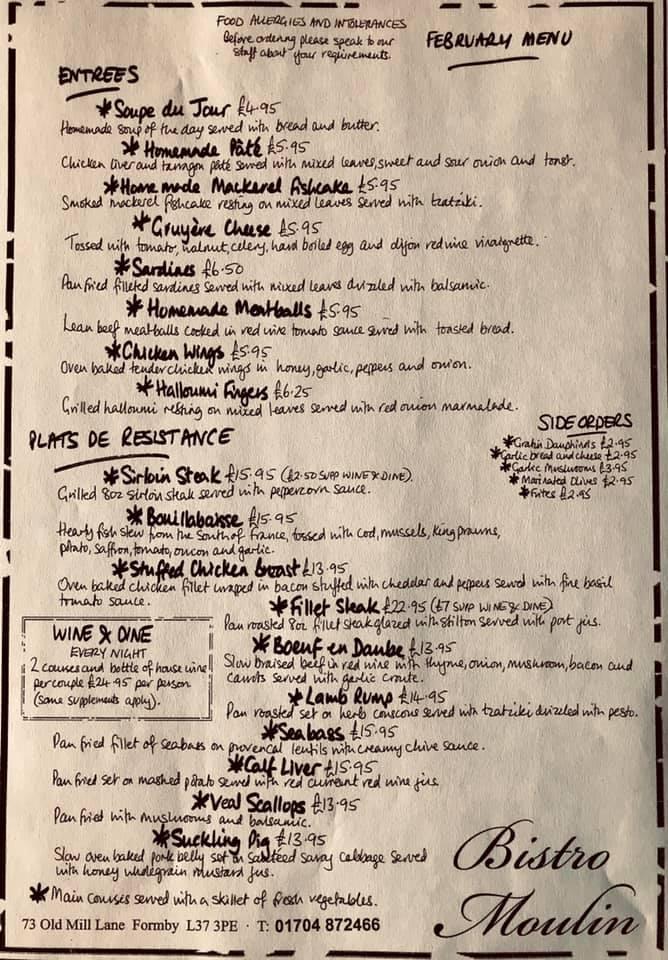 FOOD ALLERGIES AND INTOLERANCES
Before ordering please speak to our
staff about your requirements.
FEBRUARY MENU
ENTREES
*Soupe du Jour £4.95
Homemade soup of the day served with bread and butter.
*Homemade Pâté £5.95
Chicken liver and tarragon pâté served with mixed leaves, sweet and sour onion and toast.
*Home made Mackerel fishcake £5.95
Smoked mackerel fishcake resting on mixed leaves served with tzatziki.
*Gruyère Cheese £5.95
Tossed with tomato, walnut, celery, hard boiled egg and dijon red wine vinaigrette.
*Sardines £6.50
Pan fried filleted sardines served with mixed leaves drizzled with balsamic.
*Homemade Meatballs £5.95
Lean beef meatballs cooked in red wine tomato sauce served with toasted bread.
*Chicken Wings £5.95
Oven baked tender chicken wings in honey, garlic, peppers and onion.
*Halloumi Fingers £6.25
Grilled halloumi resting on mixed leaves served with red onion marmalade.
SIDE ORDERS
*Gratin Dauphinois £2.95
*Garlic bread and cheese £2.95
*Garlic Mushrooms £3.95
*Marinated Olives £2.95
*Frites £2.95
PLATS DE RESISTANCE
*Sirloin Steak £15.95 (£2.50 SUPP WINE & DINE).
Grilled 8oz sirloin steak served with peppercorn sauce.
*Bouillabaisse £15.95
Hearty fish stew from the South of France, tossed with cod, mussels, king prawns,
potato, saffron, tomato, onion and garlic.
*Stuffed Chicken breast £13.95
Oven baked chicken fillet wrapped in bacon stuffed with cheddar and peppers served with fine basil
tomato sauce.
*Fillet Steak £22.95 (£7 SUPP WINE & DINE)
Pan roasted 8oz fillet steak glazed with stilton served with port jus.
WINE & DINE
EVERY NIGHT
2 courses and bottle of house wine
per couple £24.95 per person
(some supplements apply).
*Boeuf en Daube £13.95
Slow braised beef in red wine with thyme, onion, mushroom, bacon and
carrots served with garlic croute.
*Lamb Rump £14.95
Pan roasted set on herb couscous served with tzatziki drizzled with pesto.
*Seabass £15.95
Pan fried fillet of seabass on provencal lentils with creamy chive sauce.
*Calf Liver £15.95
Pan fried set on mashed potato served with red currant red wine jus.
*Veal Scallops £13.95
Pan fried with mushrooms and balsamic.
*Suckling Pig £13.95
Slow oven baked pork belly set on sautéed savoy cabbage served
with honey wholegrain mustard jus.
*Main courses served with a skillet of fresh vegetables.
Bistro
Moulin
73 Old Mill Lane Formby L37 3PE · T: 01704 872466